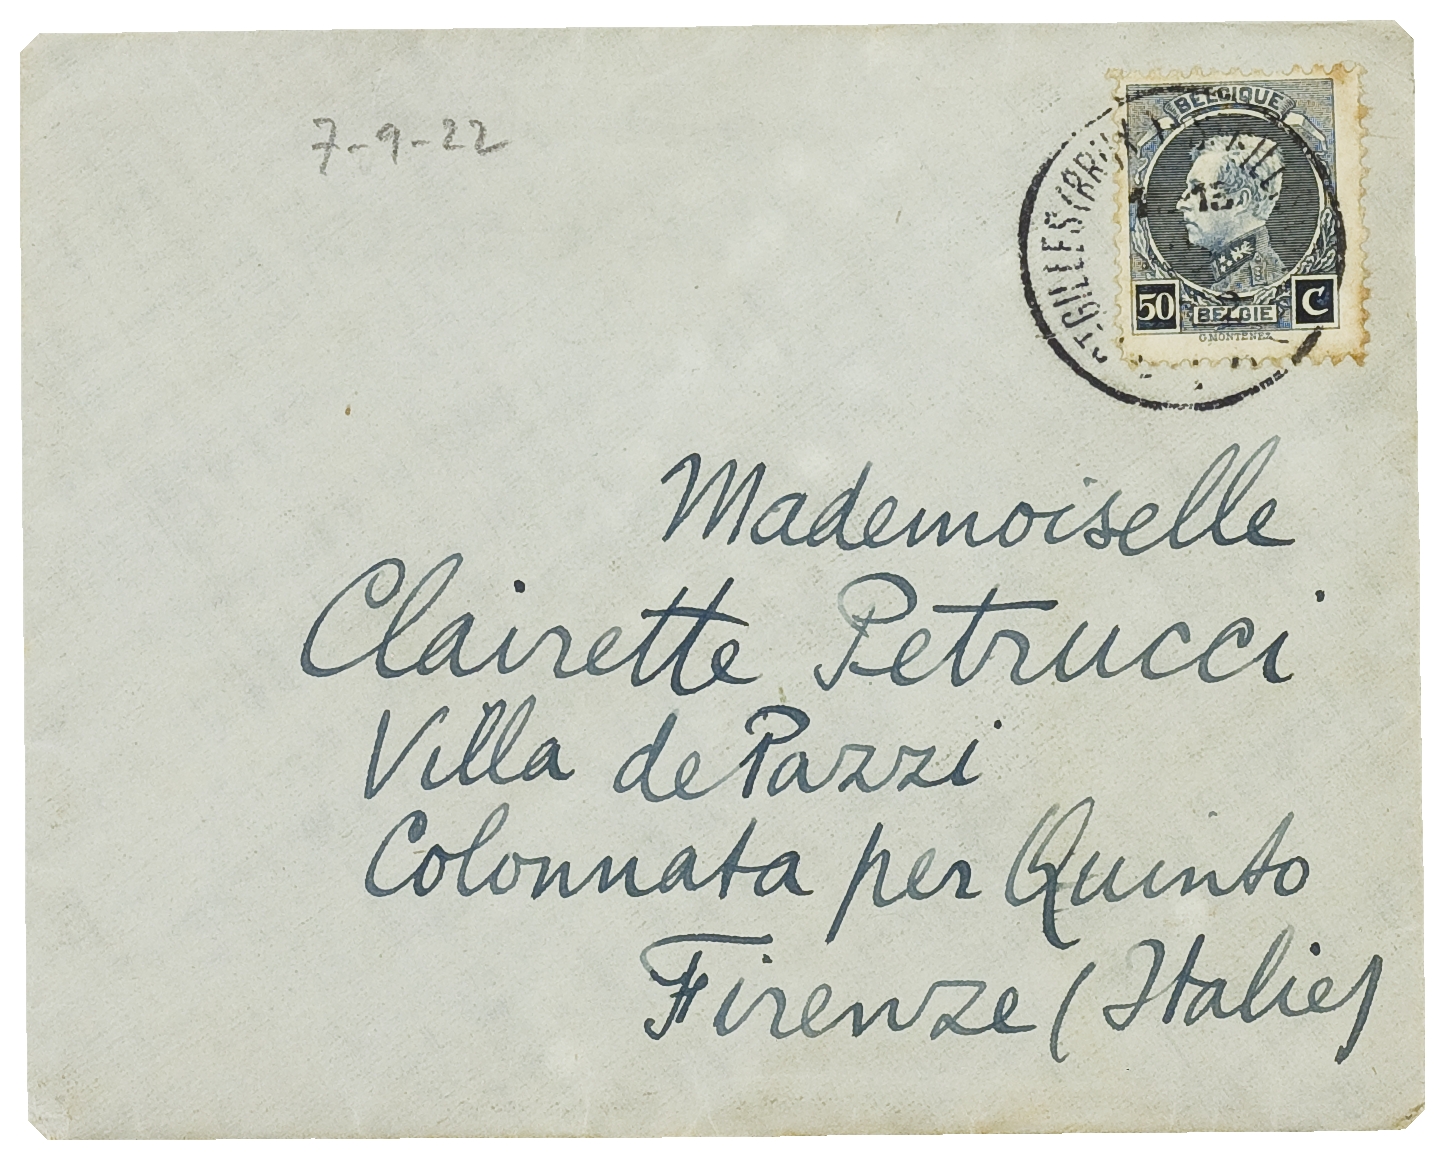 7-9-22
BELGIQUE
15
50 C
BELGIE
G.MONTENEZ
Mademoiselle
Clairette Petrucci
Villa de Pazzi
Colonnata per Quinto
Firenze (Italie)